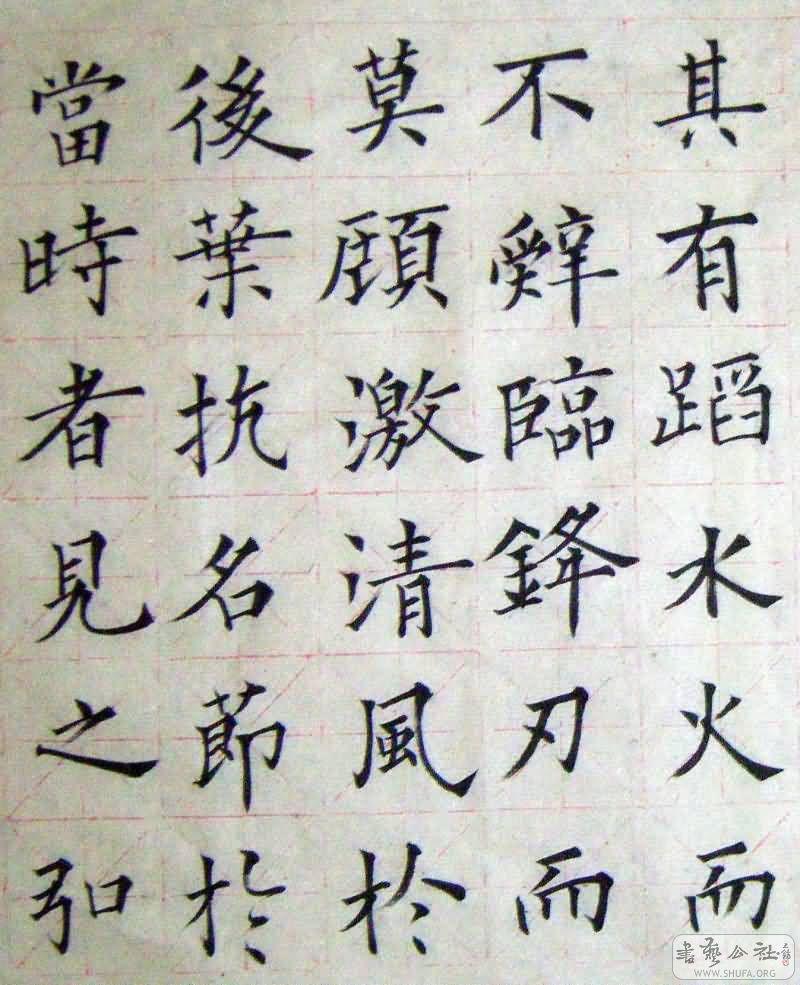 其有蹈水火而
不辭臨鋒刃而
莫顧激清風於
後葉抗名節於
當時者見之弘
書藝公社
WWW.SHUFA.ORG